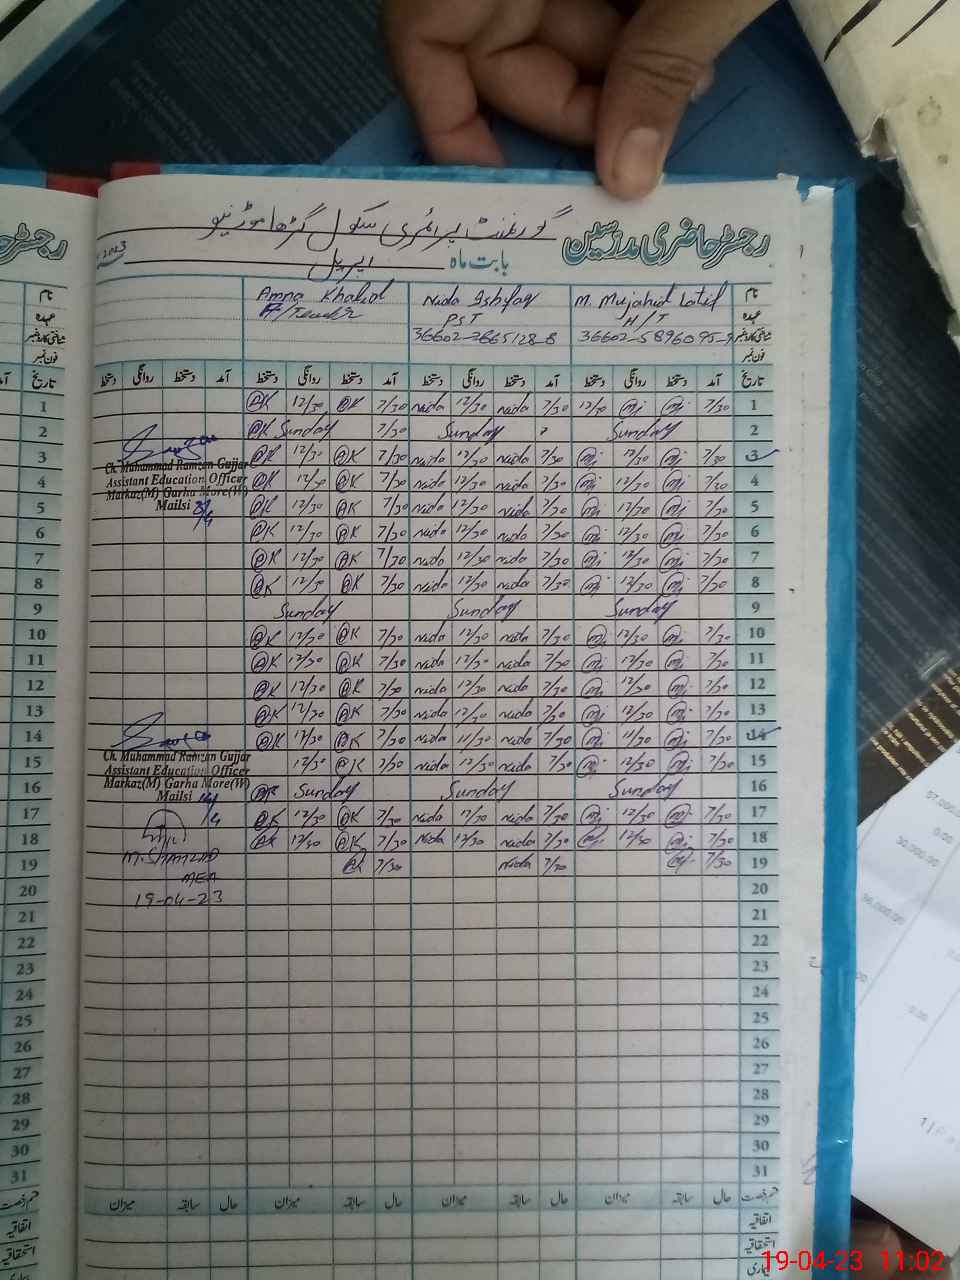 گورنمنٹ پرائمری سکول گڑھا موڑ نیو
رجسٹر حاضری مدرسین
بابت ماہ اپریل 2023
نام M. Mujahid Latif Nida Ishfaq Amna Khalid
عہدہ H/T PST H/Teacher
شناختی کارڈ نمبر 36602-5896095-9 36602-2665128-8
فون نمبر
تاریخ آمد دستخط روانگی دستخط آمد دستخط روانگی دستخط آمد دستخط روانگی دستخط آمد دستخط روانگی دستخط
1 7/30 mj mj 12/30 7/30 Nida 12/30 Nida 7/30 AK 12/30 AK
2 Sunday Sunday 7/30 Sunday AK
3 7/30 mj 12/30 mj 7/30 Nida 12/30 Nida 7/30 AK 12/30 AK
4 7/30 mj 12/30 mj 7/30 Nida 12/30 Nida 7/30 AK 12/30 AK
5 7/30 mj 12/30 mj 7/30 Nida 12/30 Nida 7/30 AK 12/30 AK
6 7/30 mj 12/30 mj 7/30 Nida 12/30 Nida 7/30 AK 12/30 AK
7 7/30 mj 12/30 mj 7/30 Nida 12/30 Nida 7/30 AK 12/30 AK
8 7/30 mj 12/30 mj 7/30 Nida 12/30 Nida 7/30 AK 12/30 AK
9 Sunday Sunday Sunday
10 7/30 mj 12/30 mj 7/30 Nida 12/30 Nida 7/30 AK 12/30 AK
11 7/30 mj 12/30 mj 7/30 Nida 12/30 Nida 7/30 AK 12/30 AK
12 7/30 mj 12/30 mj 7/30 Nida 12/30 Nida 7/30 AK 12/30 AK
13 7/30 mj 12/30 mj 7/30 Nida 12/30 Nida 7/30 AK 12/30 AK
14 7/30 mj 11/30 mj 7/30 Nida 11/30 Nida 7/30 AK 11/30 AK
15 7/30 mj 12/30 mj 7/30 Nida 12/30 Nida 7/30 AK 12/30
16 Sunday Sunday Sunday AK
17 7/30 mj 12/30 mj 7/30 Nida 12/30 Nida 7/30 AK 12/30 AK
18 7/30 mj 12/30 mj 7/30 Nida 12/30 Nida 7/30 AK 12/30 AK
19 7/30 mj 7/30 Nida 7/30 AK
20
21
22
23
24
25
26
27
28
29
30
31
Ch. Muhammad Ramzan Gujjar
Assistant Education Officer
Markaz(M) Garha More(W)
Mailsi 3/4
Ch. Muhammad Ramzan Gujjar
Assistant Education Officer
Markaz(M) Garha More(W)
Mailsi 14/4
M. Shahzad
MEA
19-04-23
قسم رخصت حال سابقہ میزان حال سابقہ میزان حال سابقہ میزان حال سابقہ میزان
اتفاقیہ
استحقاقیہ
بیماری
57,000.00
0.00
30,000.00
96,000.00
0.00
19-04-23 11:02